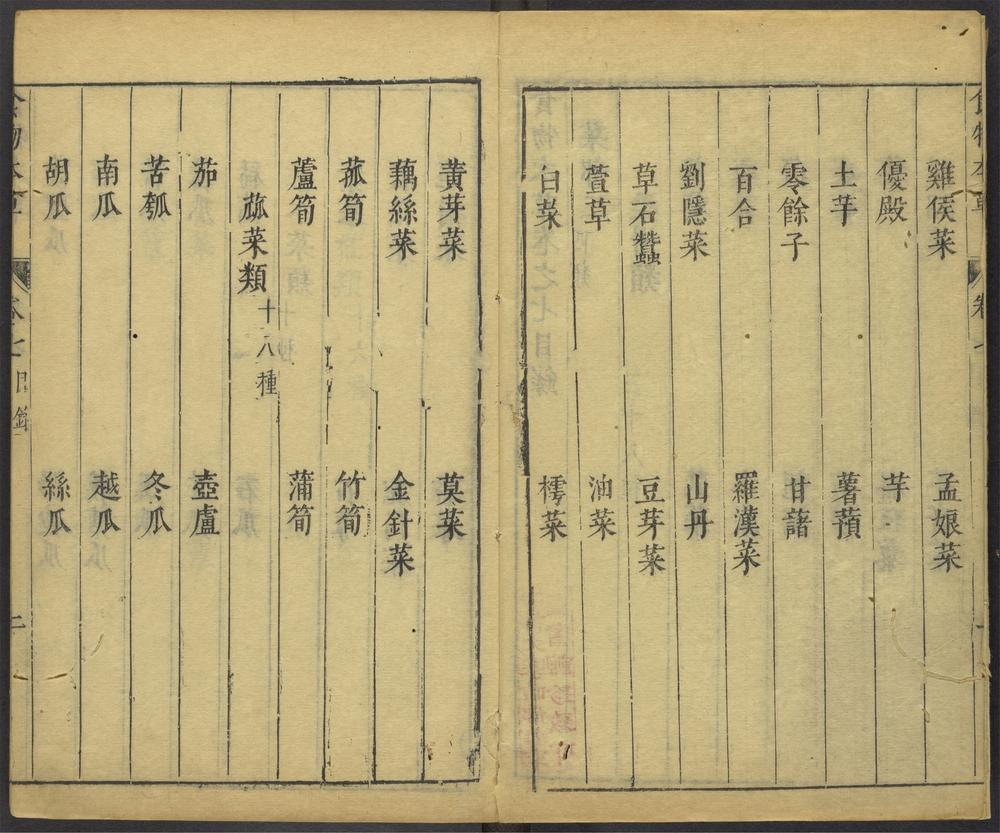 雞侯菜 孟娘菜
優殿 芋
土芋 薯蕷
零餘子 甘藷
百合 羅漢菜
劉隱菜 山丹
草石蠶 豆芽菜
萱草 油菜
白菜 樗菜
黄芽菜 莫菜
藕絲菜 金針菜
菰筍 竹筍
蘆筍 蒲筍
蓏菜類十八種
茄 壺盧
苦瓠 冬瓜
南瓜 越瓜
胡瓜 絲瓜
食物本草 卷七目錄 二